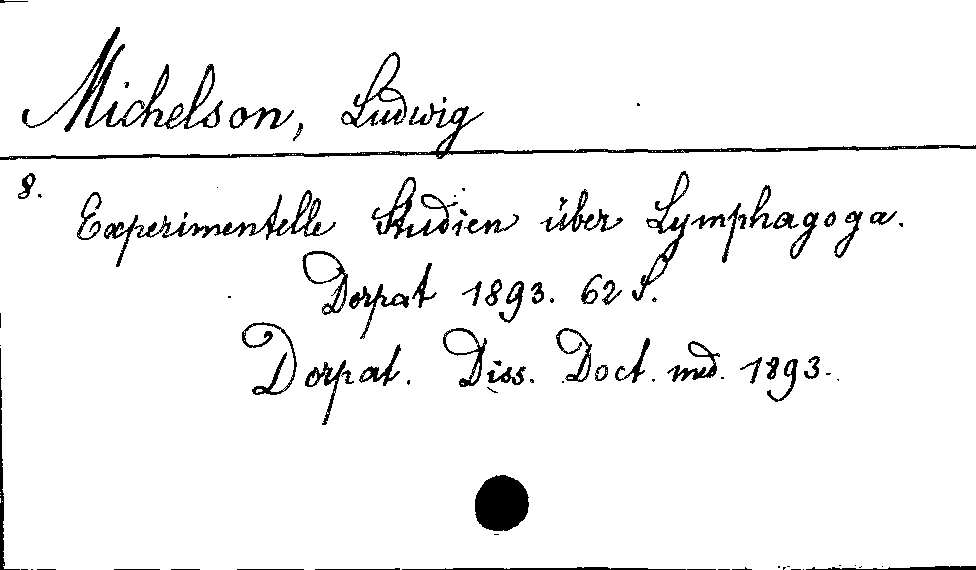 Michelson, Ludwig
8.
Experimentelle Studien über Lymphagoga.
Dorpat 1893. 62 S.
Dorpat. Diss. Doct. med. 1893.